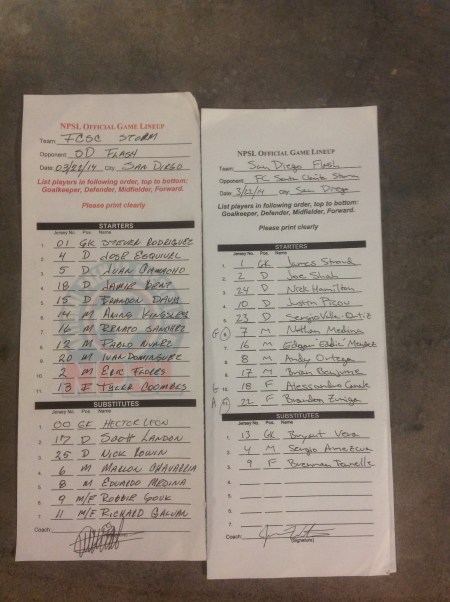 NPSL OFFICIAL GAME LINEUP
Team: FCSC STORM
Opponent: SD FLASH
Date: 03/22/14 City: SAN DIEGO
List players in following order, top to bottom:
Goalkeeper, Defender, Midfielder, Forward.
Please print clearly
STARTERS
Jersey No. Pos. Name
1. 01 GK STEVEN RODRIGUEZ
2. 4 D JOSE ESQUIVEL
3. 5 D JUAN CAMACHO
4. 18 D JAMIE DENT
5. 15 D BRANDON DAVIS
6. 14 M KINGSLEY
7. 16 M RENATO SANCHEZ
8. 12 M PABLO NUNEZ
9. 20 M IVAN DOMINGUEZ
10. 2 M ERIC FLORES
11. 13 F TYLER COOMBES
SUBSTITUTES
Jersey No. Pos. Name
1. 00 GK HECTOR LEON
2. 17 D SCOTT LANDON
3. 25 D NICK
4. 6 M MARLON CHAVARRIA
5. 8 M EDUARDO MEDINA
6. 9 M/F ROBBIE
7. 11 M/F RICHARD GALVAN
Coach:
NPSL OFFICIAL GAME LINEUP
Team: San Diego Flash
Opponent: FC Santa Clarita Storm
Date: 3/22/14 City: San Diego
List players in following order, top to bottom:
Goalkeeper, Defender, Midfielder, Forward.
Please print clearly
STARTERS
Jersey No. Pos. Name
1. 1 GK James
2. 2 D Joe
3. 24 D Nick Hamilton
4. 10 D Justin Picou
5. 23 D Sergio Villa-Ortiz
G 6. 7 M Nathan Medina
7. 16 M Edgar "Eddie" Mendez
8. 8 M Andy Ortega
9. 17 M Brian
G 10. 18 F Alessandro
A 11. 22 F Brandon Zuniga
SUBSTITUTES
Jersey No. Pos. Name
1. 13 GK Bryant Vera
2. 4 M Sergio
3. 9 F Brennan
4.
5.
6.
7.
Coach:
(Signature)